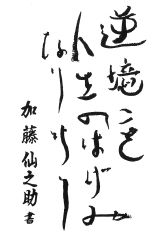 逆境こそ
人生のはげみ
なりけり
加藤仙之助書